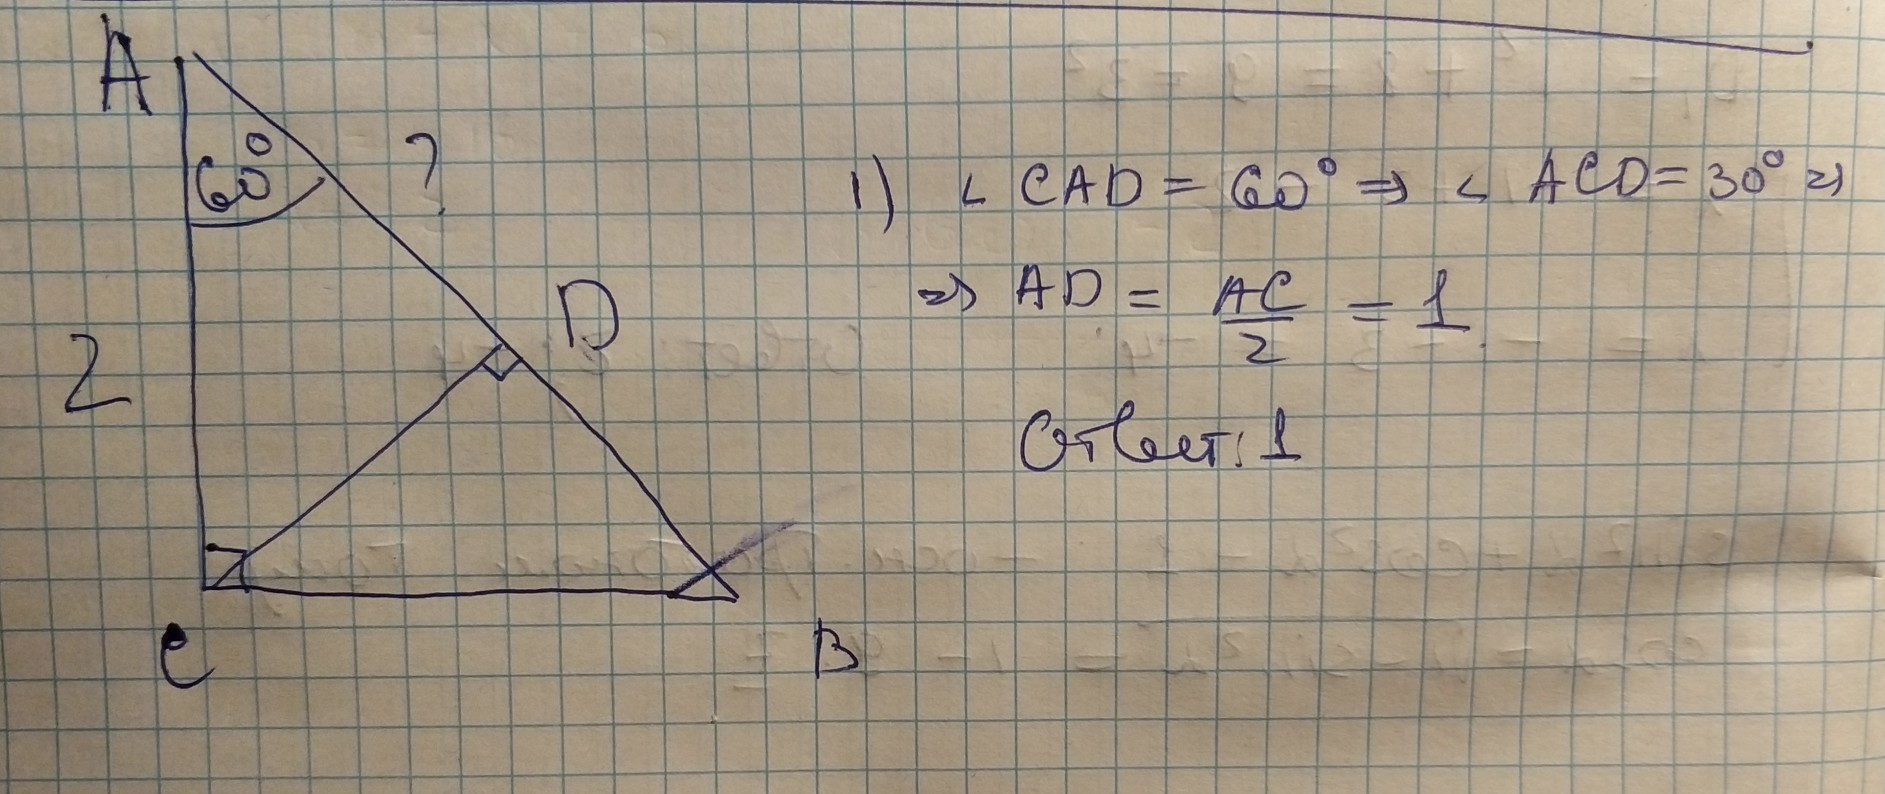 A
60°
?
D
2
C
B
1) ∠ CAD = 60° ⇒ ∠ ACD = 30° ⇒
⇒ AD = AC/2 = 1.
Ответ: 1